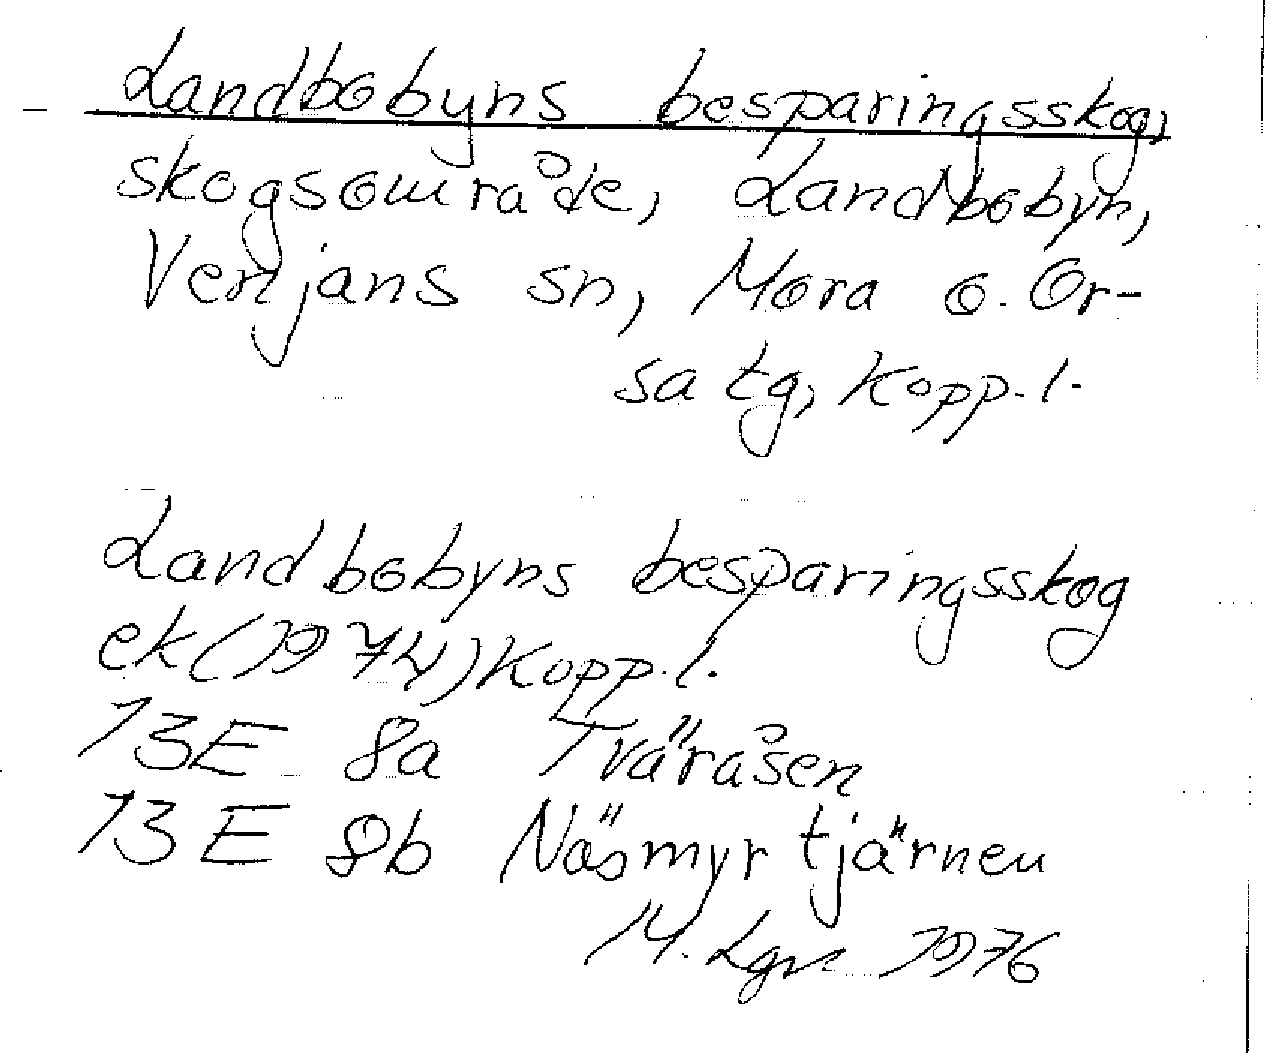 Landbobyns besparingsskog,
skogsområde, Landbobyn,
Venjans sn, Mora o. Or-
sa tg, Kopp.l.
Landbobyns besparingsskog
ek (1974) Kopp.l.
13E 8a Tväråsen
13E 8b Näsmyrtjärnen
M. Lgn 1976